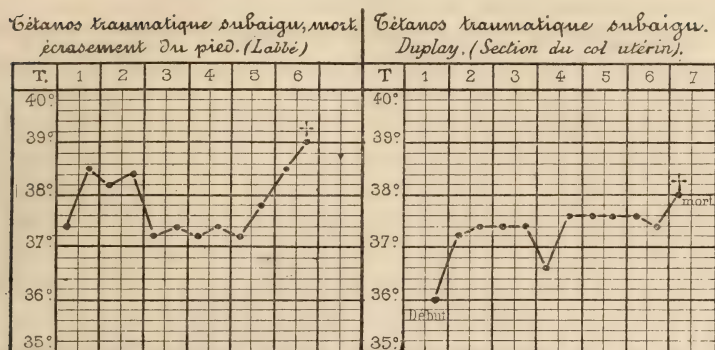 Tétanos traumatique subaigu, mort.
écrasement du pied. (Labbé)
T. 1 2 3 4 5 6
40°
39°
38°
37°
36°
35°
Tétanos traumatique subaigu.
Duplay. (Section du col utérin).
T 1 2 3 4 5 6 7
40°
39°
38°
mort
37°
36°
Début
35°